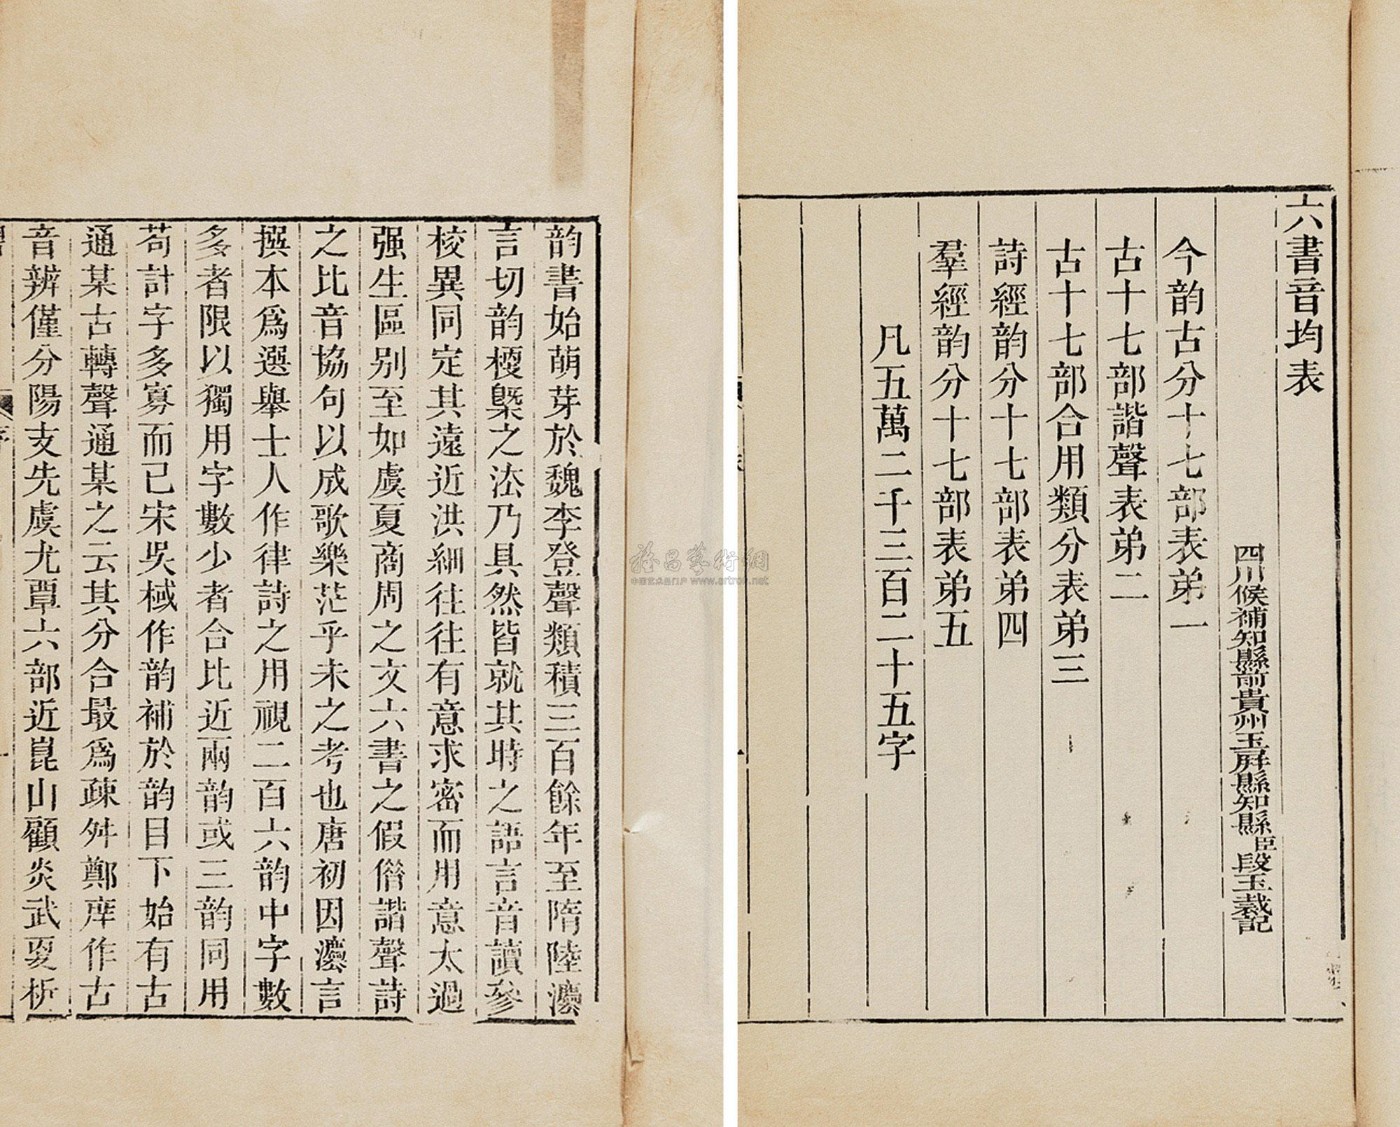 六書音均表
四川候補知縣前貴州玉屏縣知縣臣段玉裁記
今韵古分十七部表弟一
古十七部諧聲表弟二
古十七部合用類分表弟三
詩經韵分十七部表弟四
羣經韵分十七部表弟五
凡五萬二千三百二十五字
韵書始萌芽於魏李登聲類積三百餘年至隋陸灋
言切韵梗槩之法乃具然皆就其時之語言音讀參
校異同定其遠近洪細往往有意求密而用意太過
强生區别至如虞夏商周之文六書之假借諧聲詩
之比音協句以成歌樂茫乎未之考也唐初因灋言
撰本爲選舉士人作律詩之用視二百六韵中字數
多者限以獨用字數少者合比近兩韵或三韵同用
苟計字多寡而已宋吳棫作韵補於韵目下始有古
通某古轉聲通某之云其分合最爲疎舛鄭庠作古
音辨僅分陽支先虞尤覃六部近崑山顧炎武夏析
雅昌藝術網
中国艺术品门户 www.artron.net